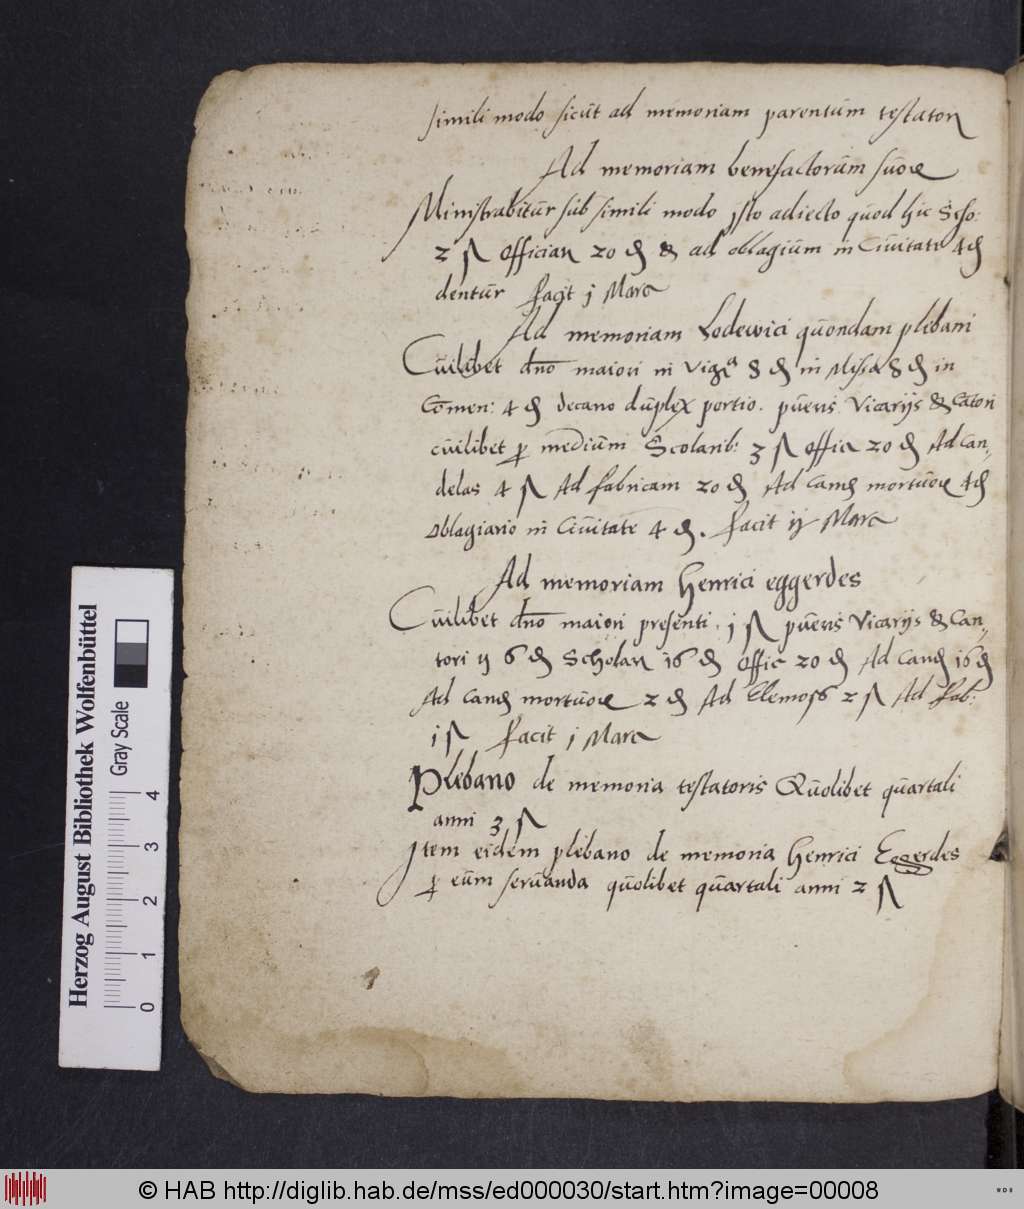 simili modo sicut ad memoriam parentum testator
Ad memoriam benefactorum suor
Ministrabitur sub simili modo isto adiecto quod hic Scho:
2 ß Offician 20 ₰ & ad oblagium in Civitate 4 ₰
dentur facit j Marc
Ad memoriam Lodewici quondam plebani
Cuilibet dno maiori in Vigia 8 ₰ in Missa 8 ₰ in
Comen: 4 ₰ decano duplex portio. pueris Vicarijs & Cātori
cuilibet p medium Scolarib: 3 ß offic 20 ₰ Ad Can⸗
delas 4 ß Ad fabricam 20 ₰ Ad Cam mortuor 4 ₰
Oblagiario in Civitate 4 ₰. facit ij Marc
Ad memoriam Henrici eggerdes
Cuilibet dno maiori presenti. j ß pueris Vicarijs & Can⸗
tori ij 6 ₰ Scholar 16 ₰ Offic 20 ₰ Ad Cand 16 ₰
Ad Cand mortuor 2 ₰ Ad Elemos 2 ß Ad fab:
j ß facit j Marc
Plebano de memoria testatoris Quolibet quartali
anni 3 ß
Item eidem plebano de memoria Henrici Eggerdes
p eum servanda quolibet quartali anni 2 ß
Herzog August Bibliothek Wolfenbüttel
Gray Scale
0 1 2 3 4
© HAB http://diglib.hab.de/mss/ed000030/start.htm?image=00008